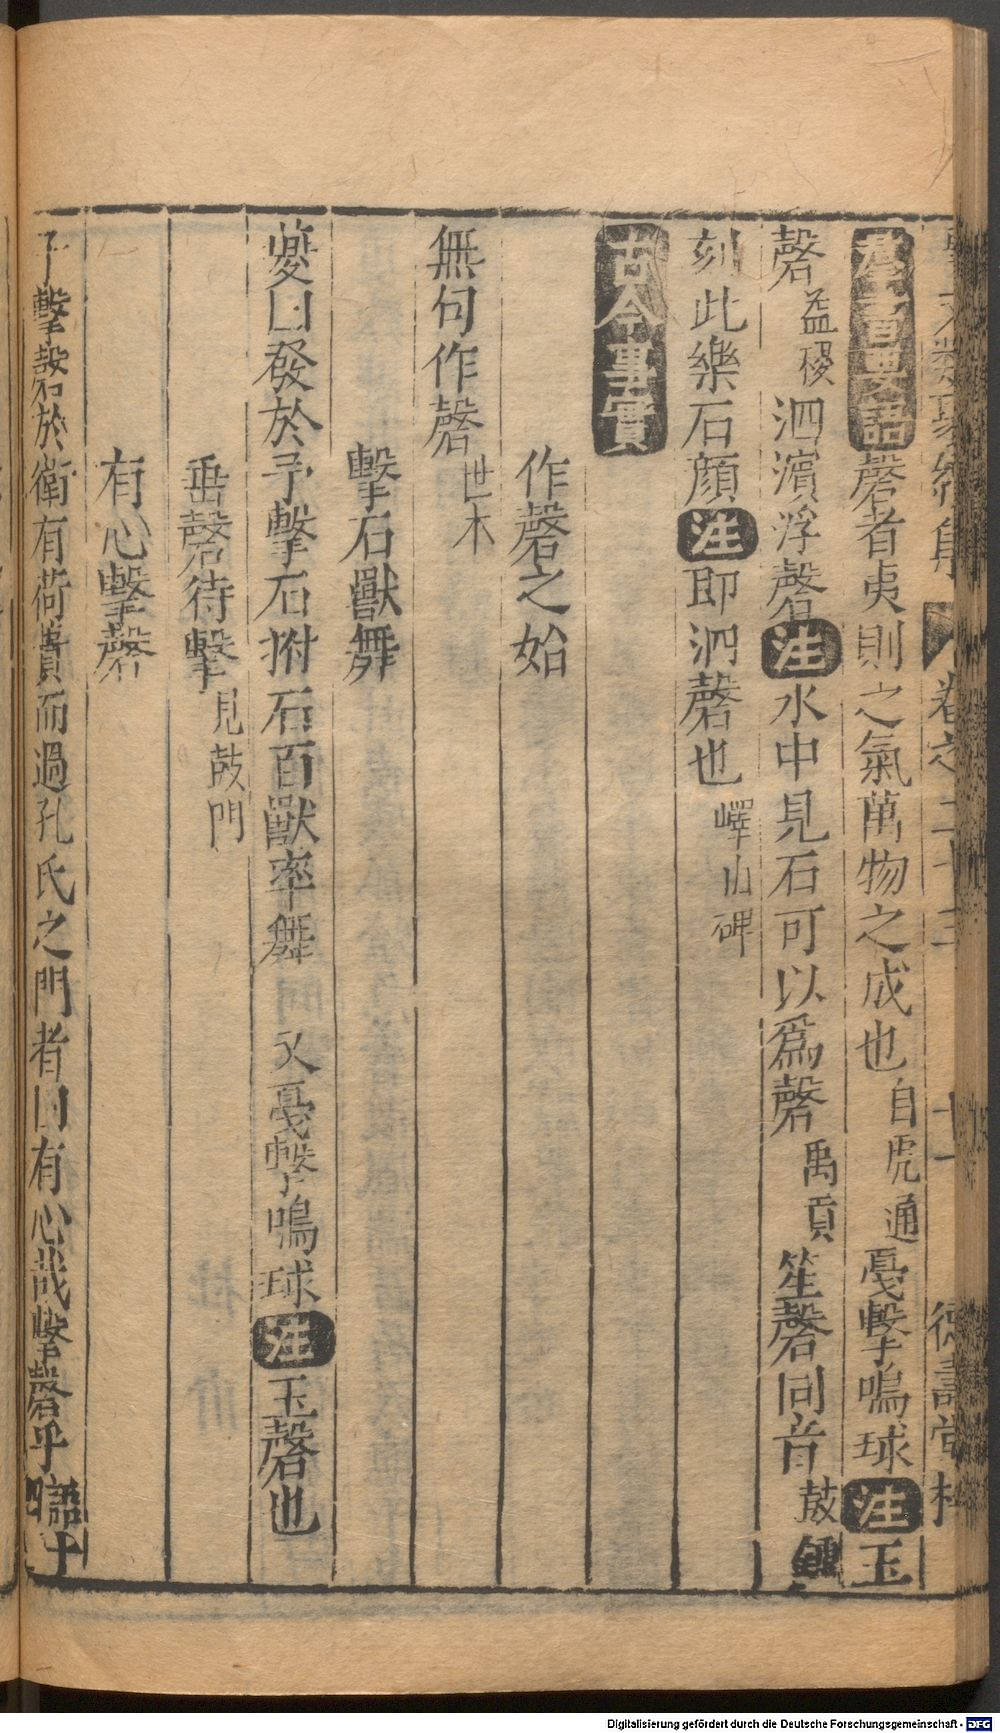 事文類聚續集 卷之二十三 十一 德壽堂梓
羣書要語磬者夷則之氣萬物之成也自虎通戞擊鳴球注玉
磬益稷泗濱浮磬注水中見石可以爲磬禹貢笙磬同音鼓鍾
刻此樂石顔注即泗磬也嶧山碑
古今事實
作磬之始
無句作磬世本
擊石獸舞
夔曰發於予擊石拊石百獸率舞 又戞擊鳴球注玉磬也
垂磬待擊見鼓門
有心擊磬
子擊磬於衛有荷蕢而過孔氏之門者曰有心哉擊磬乎語十四
Digitalisierung gefördert durch die Deutsche Forschungsgemeinschaft - DFG